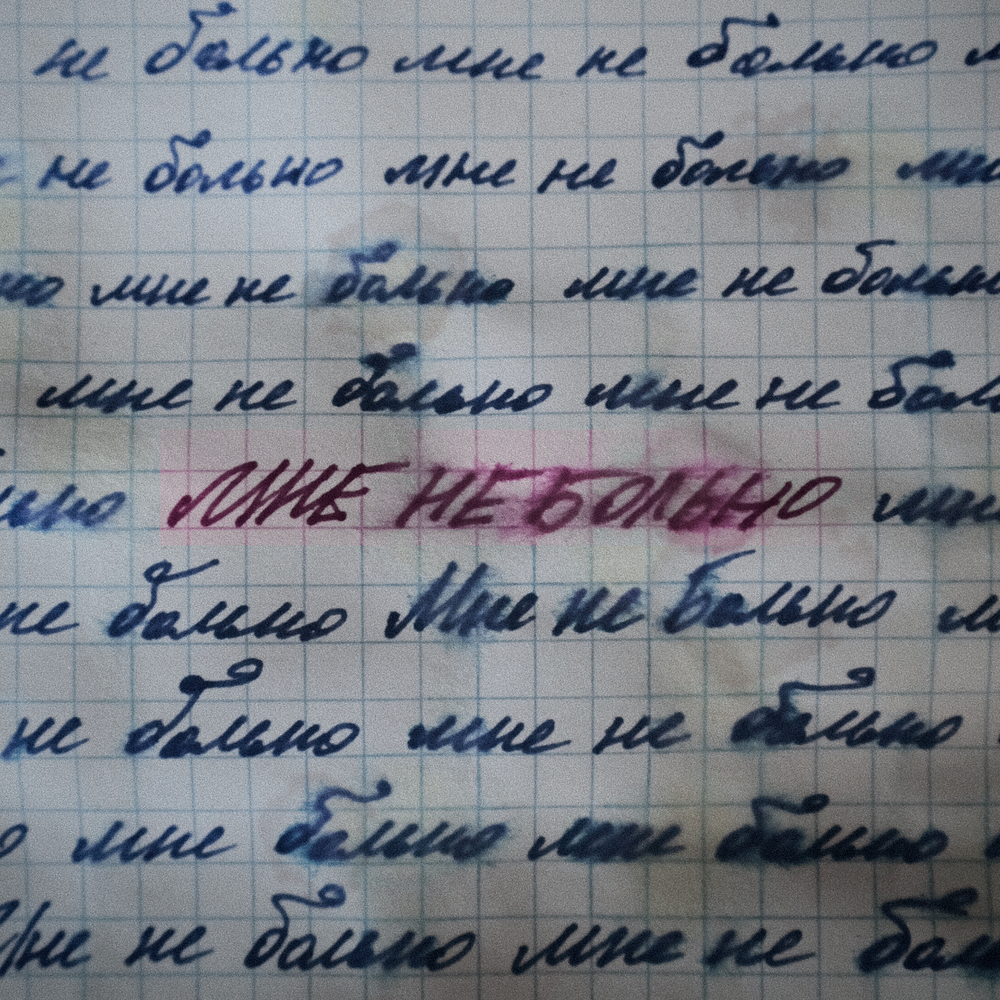 не больно мне не больно
не больно мне не больно мне
но мне не больно мне не больно
мне не больно мне не бол
льно МНЕ НЕ БОЛЬНО мне
не больно Мне не Больно м
не больно мне не больно
о мне не больно мне не больно
Мне не больно мне не бол